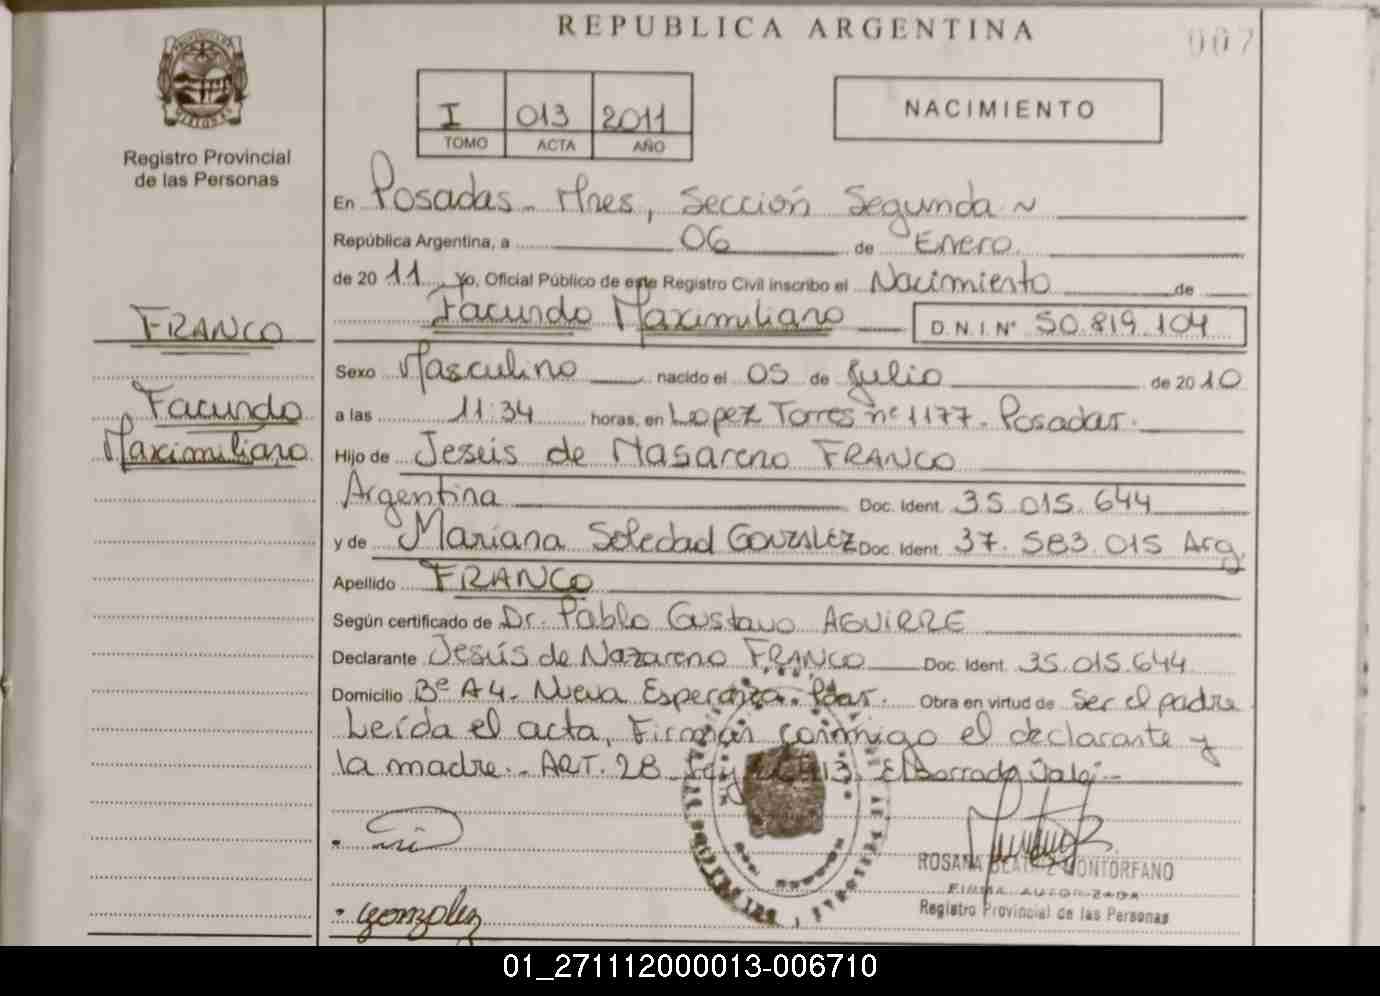 REPUBLICA ARGENTINA
007
Registro Provincial
de las Personas
I 013 2011
TOMO ACTA AÑO
NACIMIENTO
En Posadas - Mnes, Sección Segunda ~
República Argentina, a 06 de Enero
de 2011 Yo, Oficial Público de este Registro Civil inscribo el Nacimiento de
Facundo Maximiliano D.N.I. Nº 50.819.104
FRANCO
Facundo
Maximiliano
Sexo Masculino nacido el 05 de Julio de 2010
a las 11:34 horas, en Lopez Torres nº 1177 - Posadas.
Hijo de Jesús de Nasareno FRANCO
Argentina Doc. Ident. 35.015.644
y de Mariana Soledad GONZALEZ Doc. Ident. 37.583.015 Arg.
Apellido FRANCO
Según certificado de Dr. Pablo Gustavo AGUIRRE
Declarante Jesús de Nazareno FRANCO Doc. Ident. 35.015.644
Domicilio Bº A4 - Nueva Esperanza. Pdas. Obra en virtud de Ser el padre
Leída el acta, Firman conmigo el declarante y
la madre. - ART. 28 Ley 413. El Borrado Vale. -
Gonzalez
ROSANA BEATRIZ MONTORFANO
FIRMA AUTORIZADA
Registro Provincial de las Personas
01_271112000013-006710